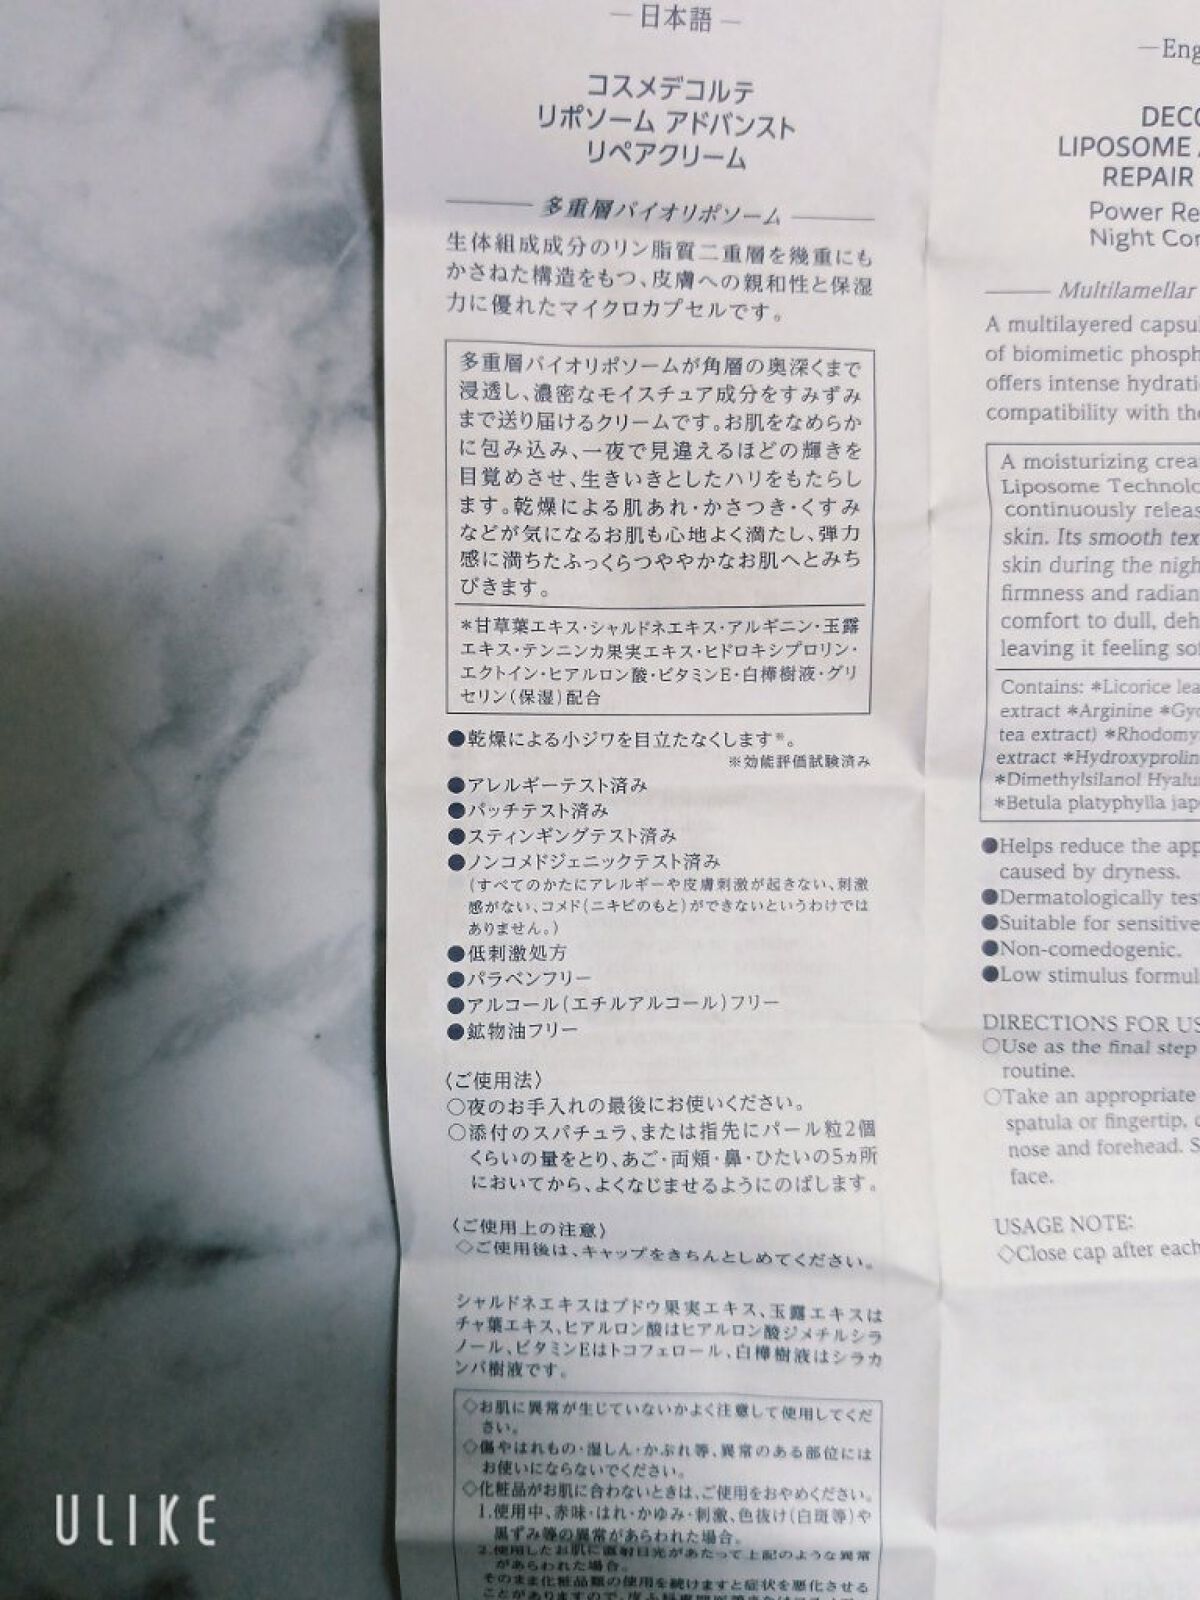 —日本語—
コスメデコルテ
リポソーム アドバンスト
リペアクリーム
多重層バイオリポソーム
生体組成成分のリン脂質二重層を幾重にも
かさねた構造をもつ、皮膚への親和性と保湿
力に優れたマイクロカプセルです。
多重層バイオリポソームが角層の奥深くまで
浸透し、濃密なモイスチュア成分をすみずみ
まで送り届けるクリームです。お肌をなめらか
に包み込み、一夜で見違えるほどの輝きを
目覚めさせ、生きいきとしたハリをもたらし
ます。乾燥による肌あれ・かさつき・くすみ
などが気になるお肌も心地よく満たし、弾力
感に満ちたふっくらつややかなお肌へとみち
びきます。
*甘草葉エキス・シャルドネエキス・アルギニン・玉露
エキス・テンニンカ果実エキス・ヒドロキシプロリン・
エクトイン・ヒアルロン酸・ビタミンE・白樺樹液・グリ
セリン(保湿)配合
●乾燥による小ジワを目立たなくします※。
※効能評価試験済み
●アレルギーテスト済み
●パッチテスト済み
●スティンギングテスト済み
●ノンコメドジェニックテスト済み
(すべてのかたにアレルギーや皮膚刺激が起きない、刺激
感がない、コメド(ニキビのもと)ができないというわけでは
ありません。)
●低刺激処方
●パラベンフリー
●アルコール(エチルアルコール)フリー
●鉱物油フリー
〈ご使用法〉
○夜のお手入れの最後にお使いください。
○添付のスパチュラ、または指先にパール粒2個
くらいの量をとり、あご・両頬・鼻・ひたいの5ヵ所
においてから、よくなじませるようにのばします。
〈ご使用上の注意〉
◇ご使用後は、キャップをきちんとしめてください。
シャルドネエキスはブドウ果実エキス、玉露エキスは
チャ葉エキス、ヒアルロン酸はヒアルロン酸ジメチルシラ
ノール、ビタミンEはトコフェロール、白樺樹液はシラカ
ンバ樹液です。
◇お肌に異常が生じていないかよく注意して使用してくだ
さい。
◇傷やはれもの・湿しん・かぶれ等、異常のある部位には
お使いにならないでください。
◇化粧品がお肌に合わないときは、ご使用をおやめください。
1.使用中、赤味・はれ・かゆみ・刺激、色抜け(白斑等)や
黒ずみ等の異常があらわれた場合。
2.使用したお肌に直射日光があたって上記のような異常
があらわれた場合。
そのまま化粧品類の使用を続けますと症状を悪化させる
—Eng
DECO
LIPOSOME A
REPAIR
Power Re
Night Con
Multilamellar
A multilayered capsu
of biomimetic phosph
offers intense hydrati
compatibility with the
A moisturizing crea
Liposome Technolo
continuously releas
skin. Its smooth tex
skin during the nigh
firmness and radian
comfort to dull, deh
leaving it feeling sof
Contains: *Licorice lea
extract *Arginine *Gyo
tea extract) *Rhodomy
extract *Hydroxyprolin
*Dimethylsilanol Hyalu
*Betula platyphylla jap
●Helps reduce the app
caused by dryness.
●Dermatologically test
●Suitable for sensitive
●Non-comedogenic.
●Low stimulus formul
DIRECTIONS FOR US
○Use as the final step
routine.
○Take an appropriate
spatula or fingertip,
nose and forehead. S
face.
USAGE NOTE:
◇Close cap after each
ULIKE